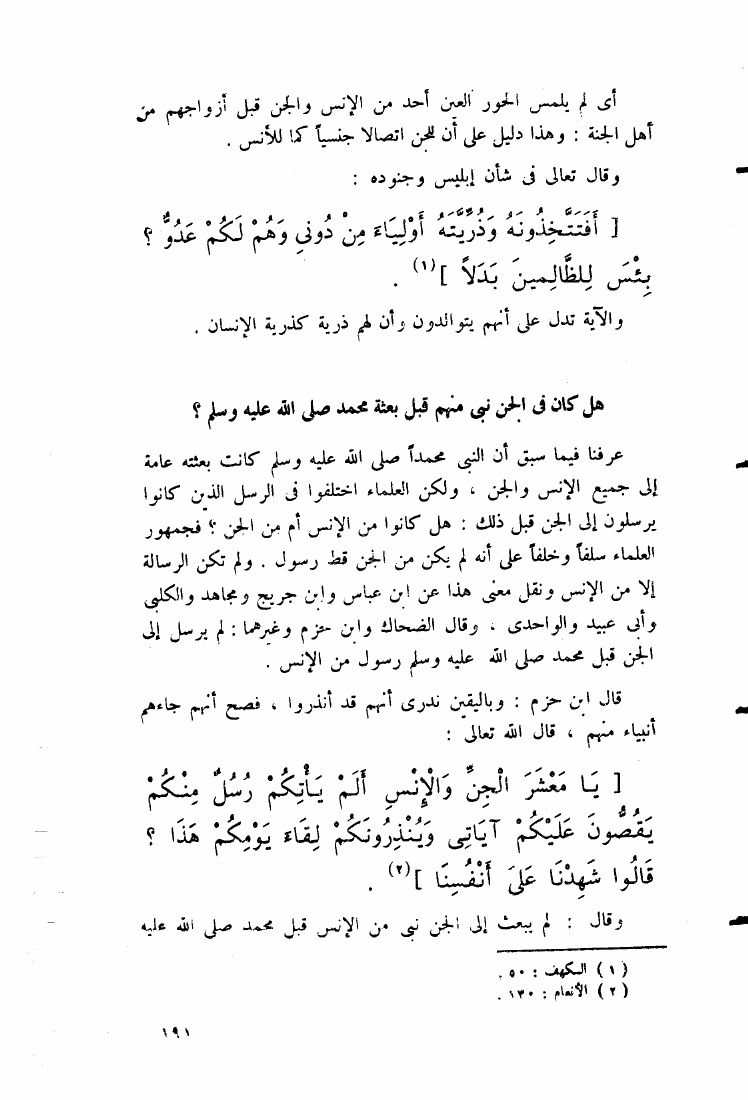 أى لم يلمس الحور العين أحد من الإنس والجن قبل أزواجهم من
أهل الجنة : وهذا دليل على أن للجن اتصالا جنسياً كما للأنس .
وقال تعالى فى شأن إبليس وجنوده :
[ أَفَتَتَّخِذُونَهُ وَذُرِّيَّتَهُ أَوْلِيَاءَ مِنْ دُونِي وَهُمْ لَكُمْ عَدُوٌّ ؟
بِئْسَ لِلظَّالِمِينَ بَدَلاً ] (١) .
والآية تدل على أنهم يتوالدون وأن لهم ذرية كذرية الإنسان .
هل كان فى الجن نبى منهم قبل بعثة محمد صلى الله عليه وسلم ؟
عرفنا فيما سبق أن النبى محمداً صلى الله عليه وسلم كانت بعثته عامة
إلى جميع الإنس والجن ، ولكن العلماء اختلفوا فى الرسل الذين كانوا
يرسلون إلى الجن قبل ذلك : هل كانوا من الإنس أم من الجن ؟ فجمهور
العلماء سلفاً وخلفاً على أنه لم يكن من الجن قط رسول . ولم تكن الرسالة
إلا من الإنس ونقل معنى هذا عن ابن عباس وابن جريج ومجاهد والكلبى
وأبى عبيد والواحدى ، وقال الضحاك وابن حزم وغيرهما : لم يرسل إلى
الجن قبل محمد صلى الله عليه وسلم رسول من الإنس .
قال ابن حزم : وباليقين ندرى أنهم قد أنذروا ، فصح أنهم جاءهم
أنبياء منهم ، قال الله تعالى :
[ يَا مَعْشَرَ الْجِنِّ وَالْإِنْسِ أَلَمْ يَأْتِكُمْ رُسُلٌ مِنْكُمْ
يَقُصُّونَ عَلَيْكُمْ آيَاتِى وَيُنْذِرُونَكُمْ لِقَاءَ يَوْمِكُمْ هَذَا ؟
قَالُوا شَهِدْنَا عَلَىَ أَنْفُسِنَا ] (٢) .
وقال : لم يبعث إلى الجن نبى من الإنس قبل محمد صلى الله عليه
( ١ ) الكهف : ٥٠ .
( ٢ ) الأنعام : ١٣٠ .
١٩١